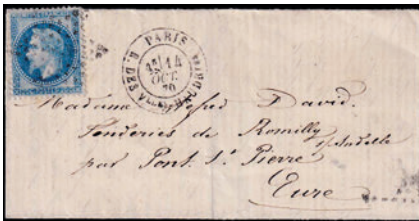 PARIS
R. DES Vlles HAUDRttes
14
OCT.
70
Madame Alfred David.
Fonderies de Romilly
s/ Andelle
par Pont St Pierre
Eure